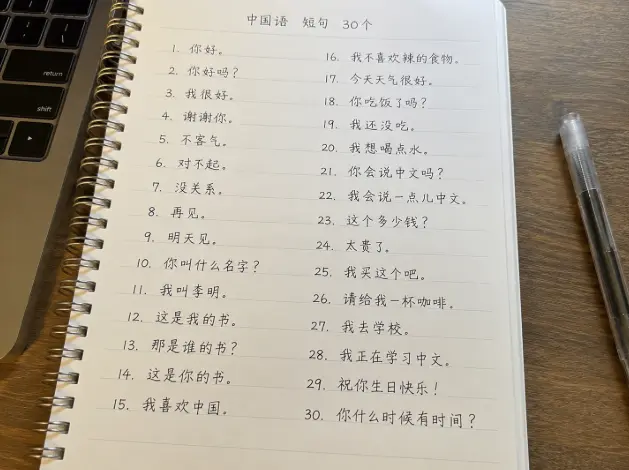 中国语 短句 30个
1. 你好。
2. 你好吗？
3. 我很好。
4. 谢谢你。
5. 不客气。
6. 对不起。
7. 没关系。
8. 再见。
9. 明天见。
10. 你叫什么名字？
11. 我叫李明。
12. 这是我的书。
13. 那是谁的书？
14. 这是你的书。
15. 我喜欢中国。
16. 我不喜欢辣的食物。
17. 今天天气很好。
18. 你吃饭了吗？
19. 我还没吃。
20. 我想喝点水。
21. 你会说中文吗？
22. 我会说一点儿中文。
23. 这个多少钱？
24. 太贵了。
25. 我买这个吧。
26. 请给我一杯咖啡。
27. 我去学校。
28. 我正在学习中文。
29. 祝你生日快乐！
30. 你什么时候有时间？
return
shift